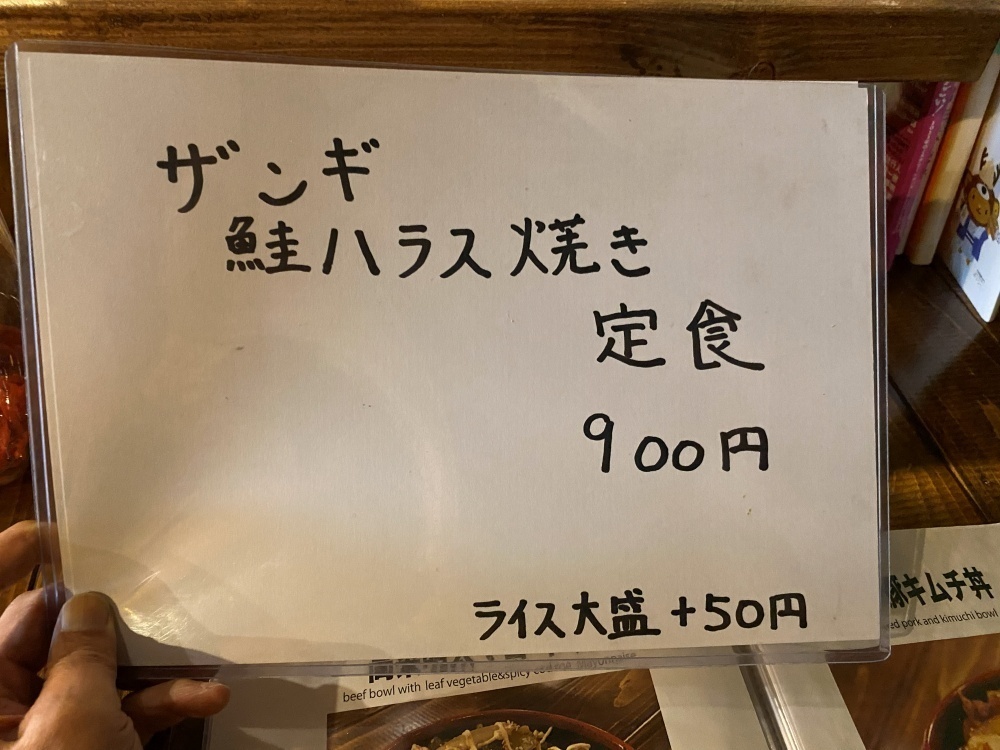 ザンギ
鮭ハラス焼き
定食
900円
ライス大盛 +50円
豚キムチ丼
pork and kimuchi bowl
beef bowl with leaf vegetable&spicy cod roe mayonnaise